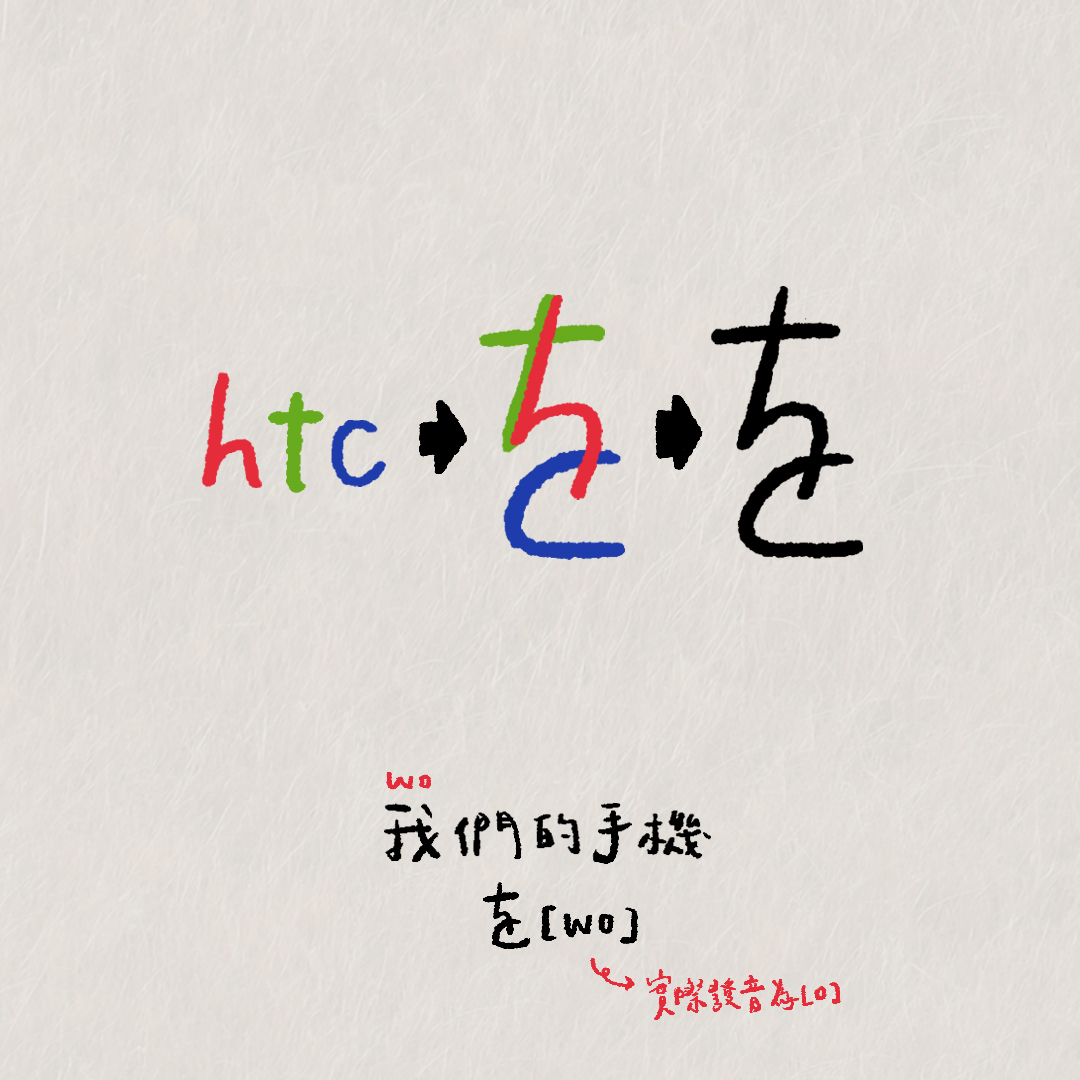 htc → を → を
wo
我們的手機
を [wo]
實際發音為[o]